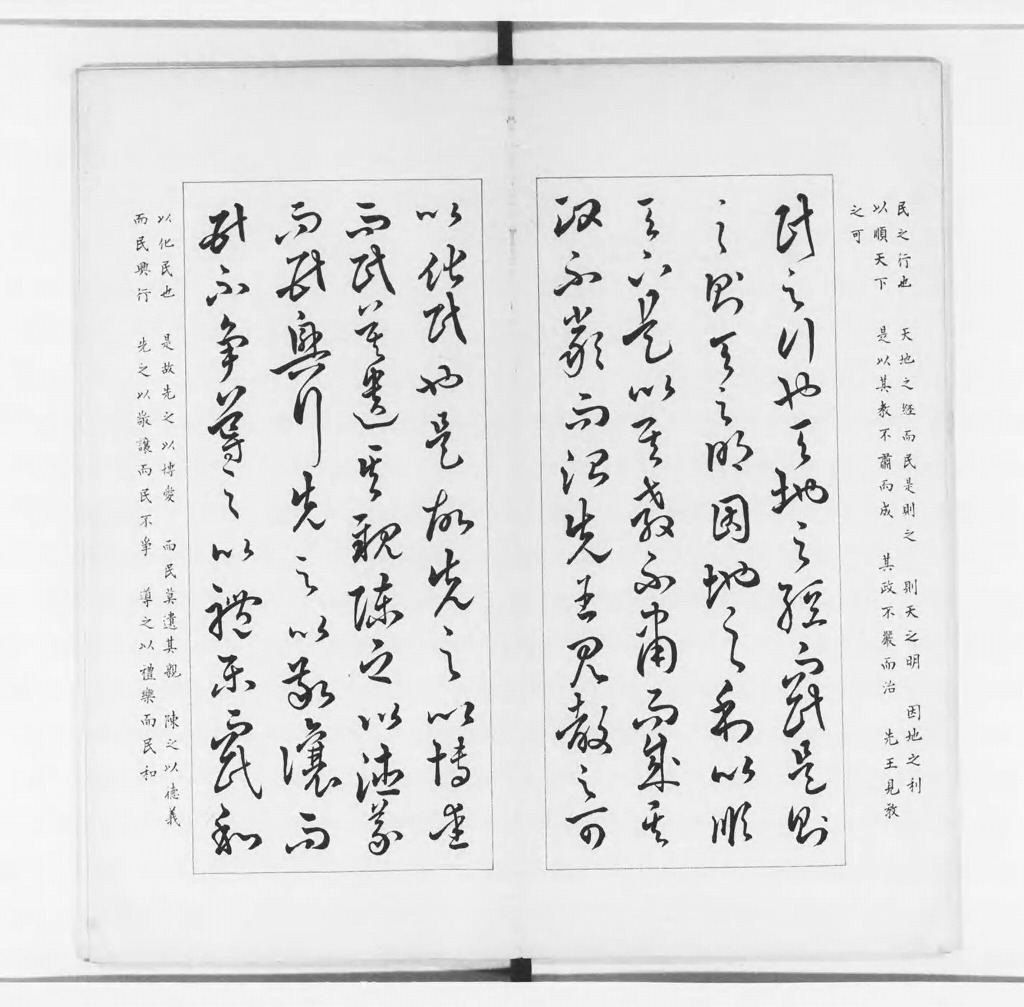 民之行也 天地之経而民是則之 則天之明 因地之利
以順天下 是以其教不肅而成 其政不嚴而治 先王見教
之可
民之行也天地之經而民是則
之則天之明因地之利以順
天下是以其教不肅而成其
政不嚴而治先王見教之可
以化民也是故先之以博愛
而民莫遺其親陳之以德義
而民興行先之以敬讓而
民不爭導之以禮樂而民和
以化民也 是故先之以博愛 而民莫遺其親 陳之以德義
而民興行 先之以敬讓而民不爭 導之以禮樂而民和